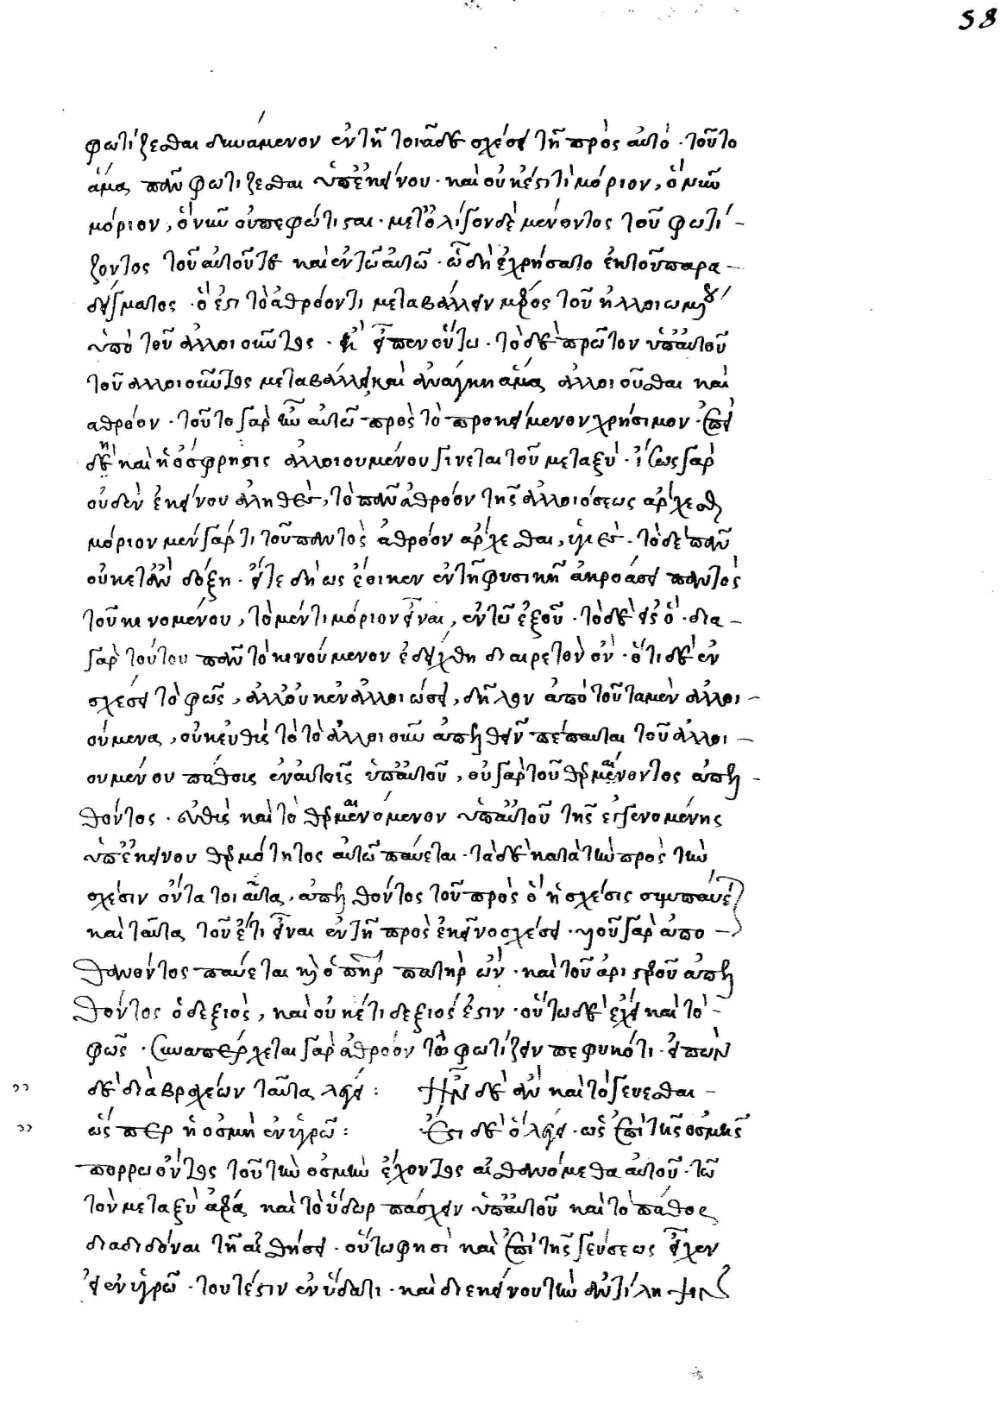 58
φωτίζεσθαι δυνάμενον ἐν τῇ τοιᾷδε σχέσει τῇ πρὸς αὐτό · τοῦτο
ἅμα πᾶν φωτίζεσθαι ὑπ' ἐκείνου · καὶ οὐκ ἔστι τὶ μόριον, ὃ νῦν
μόριον, ὃ νῦν οὐ πεφώτισται · μετ' ὀλίγον δὲ μένοντος τοῦ φωτί-
ζοντος τοῦ αὐτοῦ τε καὶ ἐν τῷ αὐτῷ · ᾧ δὴ ἐχρήσατο ἐκ τοῦ παρα-
δείγματος · ὃ ἐπὶ τὸ ἀθρόον τι μεταβάλλειν μέρος τοῦ ἠλλοιωμένου
ὑπὸ τοῦ ἀλλοιοῦντος · εἶπεν οὕτω · τὸ δὲ πρῶτον ὑπ' αὐτοῦ
τοῦ ἀλλοιοῦντος μεταβάλλει καὶ ἀνάγκη ἅμα ἀλλοιοῦσθαι καὶ
ἀθρόον · τοῦτο γὰρ ἦν αὐτῷ πρὸς τὸ προκείμενον χρήσιμον · ἐπεὶ
δὴ καὶ ἡ ὄσφρησις ἀλλοιουμένου γίνεται τοῦ μεταξύ · ἴσως γὰρ
οὐδὲν ἐκείνου ἀληθὲς, τὸ πᾶν ἀθρόον τῆς ἀλλοιώσεως ἄρχεσθαι
μόριον μὲν γάρ τι τοῦ παντὸς ἀθρόον ἄρχεσθαι, ὑγιές · τὸ δὲ πᾶν
οὐκέτ' ἂν δόξῃ · εἴ γε δὴ ὡς ἔοικεν ἐν τῇ φυσικῇ ἀκροάσει παντὸς
τοῦ κινουμένου, τὸ μέν τι μόριον εἶναι, ἐν τῷ ἐξ οὗ · τὸ δὲ εἰς ὅ · δια-
γὰρ τούτου πᾶν τὸ κινούμενον ἐδείχθη διαιρετὸν ὄν · ὅτι δὲ ἐν
σχέσει τὸ φῶς, ἀλλ' οὐκ ἐν ἀλλοιώσει, δῆλον ἀπὸ τοῦ τὰ μὲν ἀλλοι-
ούμενα, οὐκ εὐθὺς τὸ τὸ ἀλλοιοῦν ἀπελθεῖν πέπαυται τοῦ ἀλλοι-
ουμένου πάθους ἐν αὐτοῖς ὑπ' αὐτοῦ, οὐ γὰρ τοῦ θερμαίνοντος ἀπελ-
θόντος · εὐθὺς καὶ τὸ θερμαινόμενον ὑπ' αὐτοῦ τῆς ἐγγενομένης
ὑπ' ἐκείνου θερμότητος αὐτῷ παύεται · τὰ δὲ κατὰ τὴν πρός τι
σχέσιν ὄντα τοιαῦτα, ἀπελθόντος τοῦ πρὸς ὃ ἡ σχέσις συμπαύεται
καὶ ταῦτα τοῦ ἔτι εἶναι ἐν τῇ πρὸς ἐκεῖνο σχέσει · υἱοῦ γὰρ ἀπο-
θανόντος παύεται καὶ ὁ πατὴρ πατὴρ ὤν · καὶ τοῦ ἀριστεροῦ ἀπελ
θόντος ὁ δεξιὸς, καὶ οὐκέτι δεξιός ἐστιν · οὕτω δὲ ἔχει καὶ τὸ
φῶς · συναπέρχεται γὰρ ἀθρόον τῷ φωτίζειν πεφυκότι · εἰπὼν
δὲ διὰ βραχέων ταῦτα λέγει : Ἦν δὲ ἂν καὶ τὸ γεύεσθαι -
ὥσπερ ἡ ὀσμὴ ἐν ὑγρῷ : Ἔτι δὲ ὃ λέγει · ὡς ἐπὶ τῆς ὀσμῆς
πόρρω ὄντος τοῦ τὴν ὀσμὴν ἔχοντος αἰσθανόμεθα αὐτοῦ · τῷ
τὸν μεταξὺ ἀέρα καὶ τὸ ὕδωρ πάσχειν ὑπ' αὐτοῦ καὶ τὸ πάθος
διαδιδόναι τῇ αἰσθήσει · οὕτω φησὶ καὶ ἐπὶ τῆς γεύσεως εἶχεν
εἰ ἐν ὑγρῷ · τουτέστιν ἐν ὕδατι · καὶ δι' ἐκείνου τὴν ἀντίληψιν